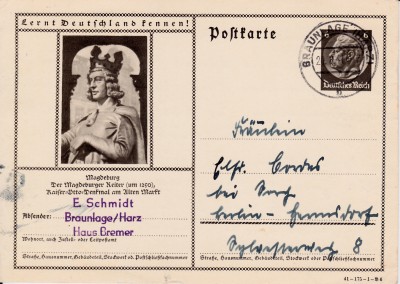 Lernt Deutschland kennen!
Postkarte
BRAUNLAGE
Deutsches Reich
Magdeburg
Der Magdeburger Reiter (um 1290),
Kaiser-Otto-Denkmal am Alten Markt
E. Schmidt
Absender: Braunlage/Harz
Haus Bremer
Wohnort, auch Zustell- oder Leitpostamt
Straße, Hausnummer, Gebäudeteil, Stockwerk od. Postschließfachnummer
Fräulein
Cordes
bei
Berlin-Hermsdorf
Sylvesterweg 8
Straße, Hausnummer, Gebäudeteil, Stockwerk oder Postschließfachnummer
41-175-1-B6